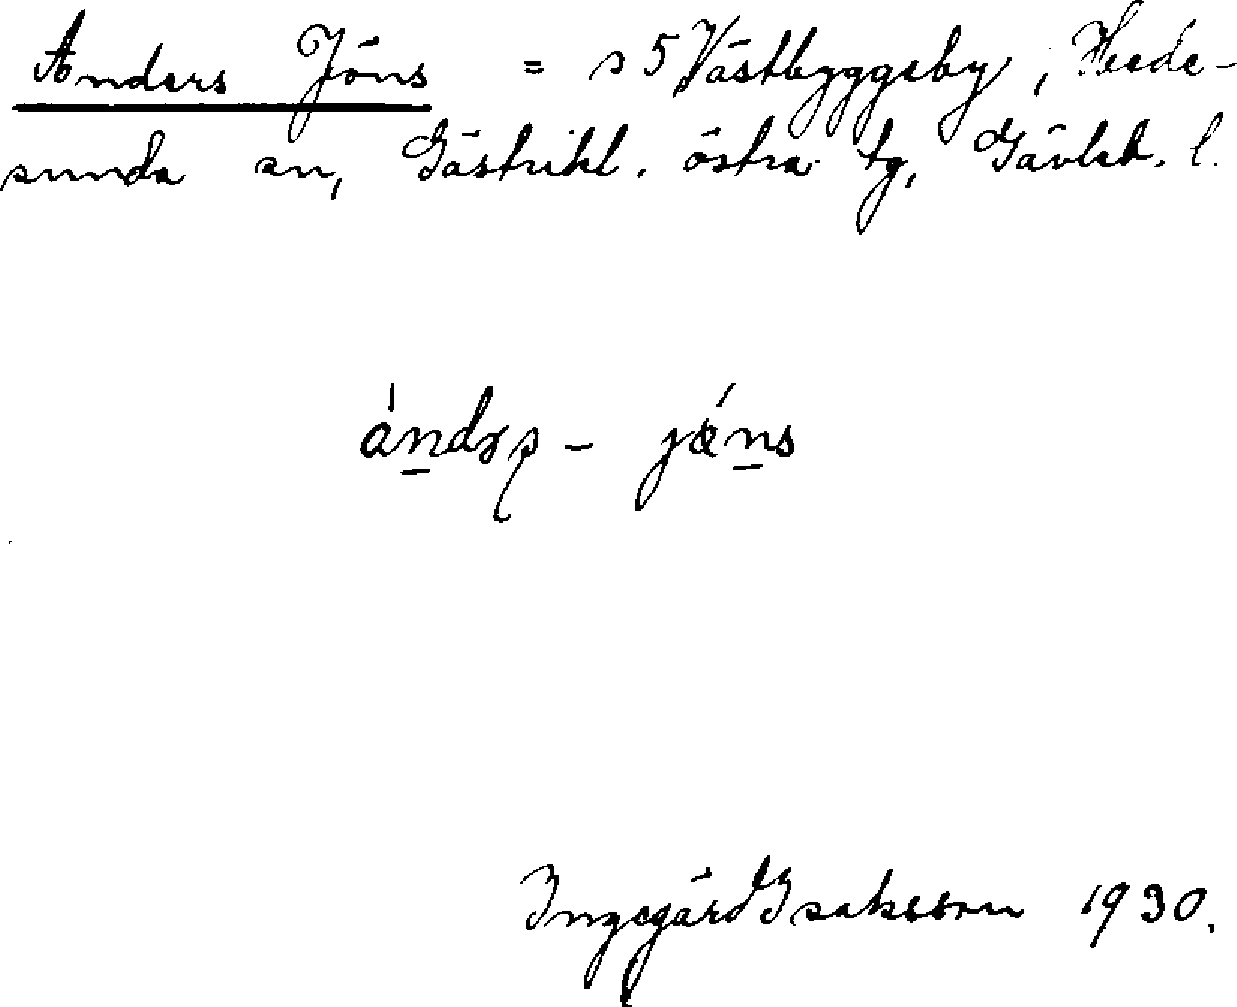 Anders Jöns = s 5 Västbyggeby, Hede-
sunda sn, Gästrikl. östra tg, Gävleb. l.
ándrs - jǽns
Ingegärd Isaksson 1930.